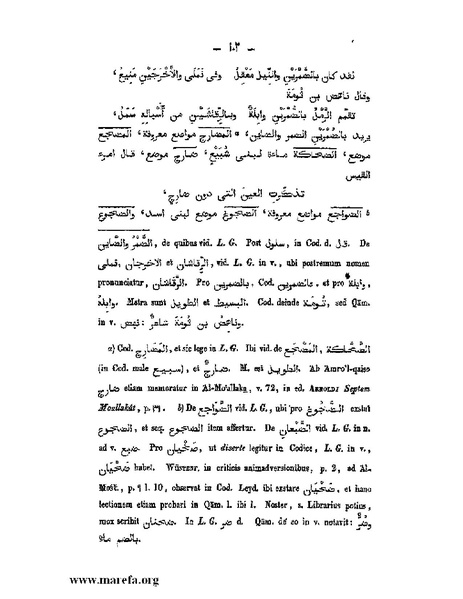 — ١٠٢ —
لقد كان بالضُّمْرَيْنِ والنِّير مَعْقِل وفى نَمَلَى والأَخْرَجَيْنِ مَنِيعُ،
وقال ناهض بن ثُومَة
تقَمَّم الرَّمْلُ بالضُّمْرَيْنِ وابِلُهُ وبالرِّقاشَيْنِ من أَسْبالِه سَمَلُ،
يريد بالضُّمْرَيْنِ الضمر والضاين، a المَضارِج مواضع معروفة، المَضْجَع
موضع، الضَّحّاكة ماءة لبنى سُبَيْع، ضارج موضع، قال امرء
القيس
تذكّرت العينَ التى دون ضارج،
b الضواجع مواضع معروفة، الضجوع موضع لبنى اسد، والضجوع
الضُّمْرُ والضَّاين, de quibus vid. L. G. Post سلول, in Cod. d. ل. De
نملى, الاخرجان et الرِّقاشان, vid. L. G. in v., ubi postremum nomen
pronunciatur, الرِّقاشَان. Pro بالضمرين, Cod. بالضمرين, et pro وابلُهُ,
وابلَهُ. Metra sunt الطويل et البسيط. Cod. deinde ثُومَة, sed Qâm.
in v. نهض: وناهِض بن ثُومَةَ شاعرٌ.
a) Cod. المَضارِج, et sic lege in L. G. Ibi vid. de المَضْجَع, الضَّحّاكة
(in Cod. male سبيع) et ضارج. M. est الطويل. Ab Amro'l-qaiso
ضارج etiam memoratur in Al-Mo'allaka, v. 72, in ed. ARNOLDI Septem
Moallakât, p. ٣١. b) De الضَّواجِع vid. L. G., ubi pro الضَّجُوع exstat
الضجوع, et seq. الضجوع item affertur. De الضَّبْعان vid. L. G. in n.
ad v. ضبع. Pro ضَحْيان, ut diserte legitur in Codice, L. G. in v.,
ضَحَيان habet. WÜSTENF. in criticis animadversionibus, p. 2, ad Al-
Mošt., p. ٩ l. 10, observat in Cod. Leyd. ibi exstare ضَحْيَان, et hanc
lectionem etiam probari in Qâm. l. ibi l. Noster, s. Librarius potius,
mox scribit ضحنان. In L. G. ضر d. Qâm. de eo in v. notavit: وضُرّ
بالضم ماء
www.marefa.org